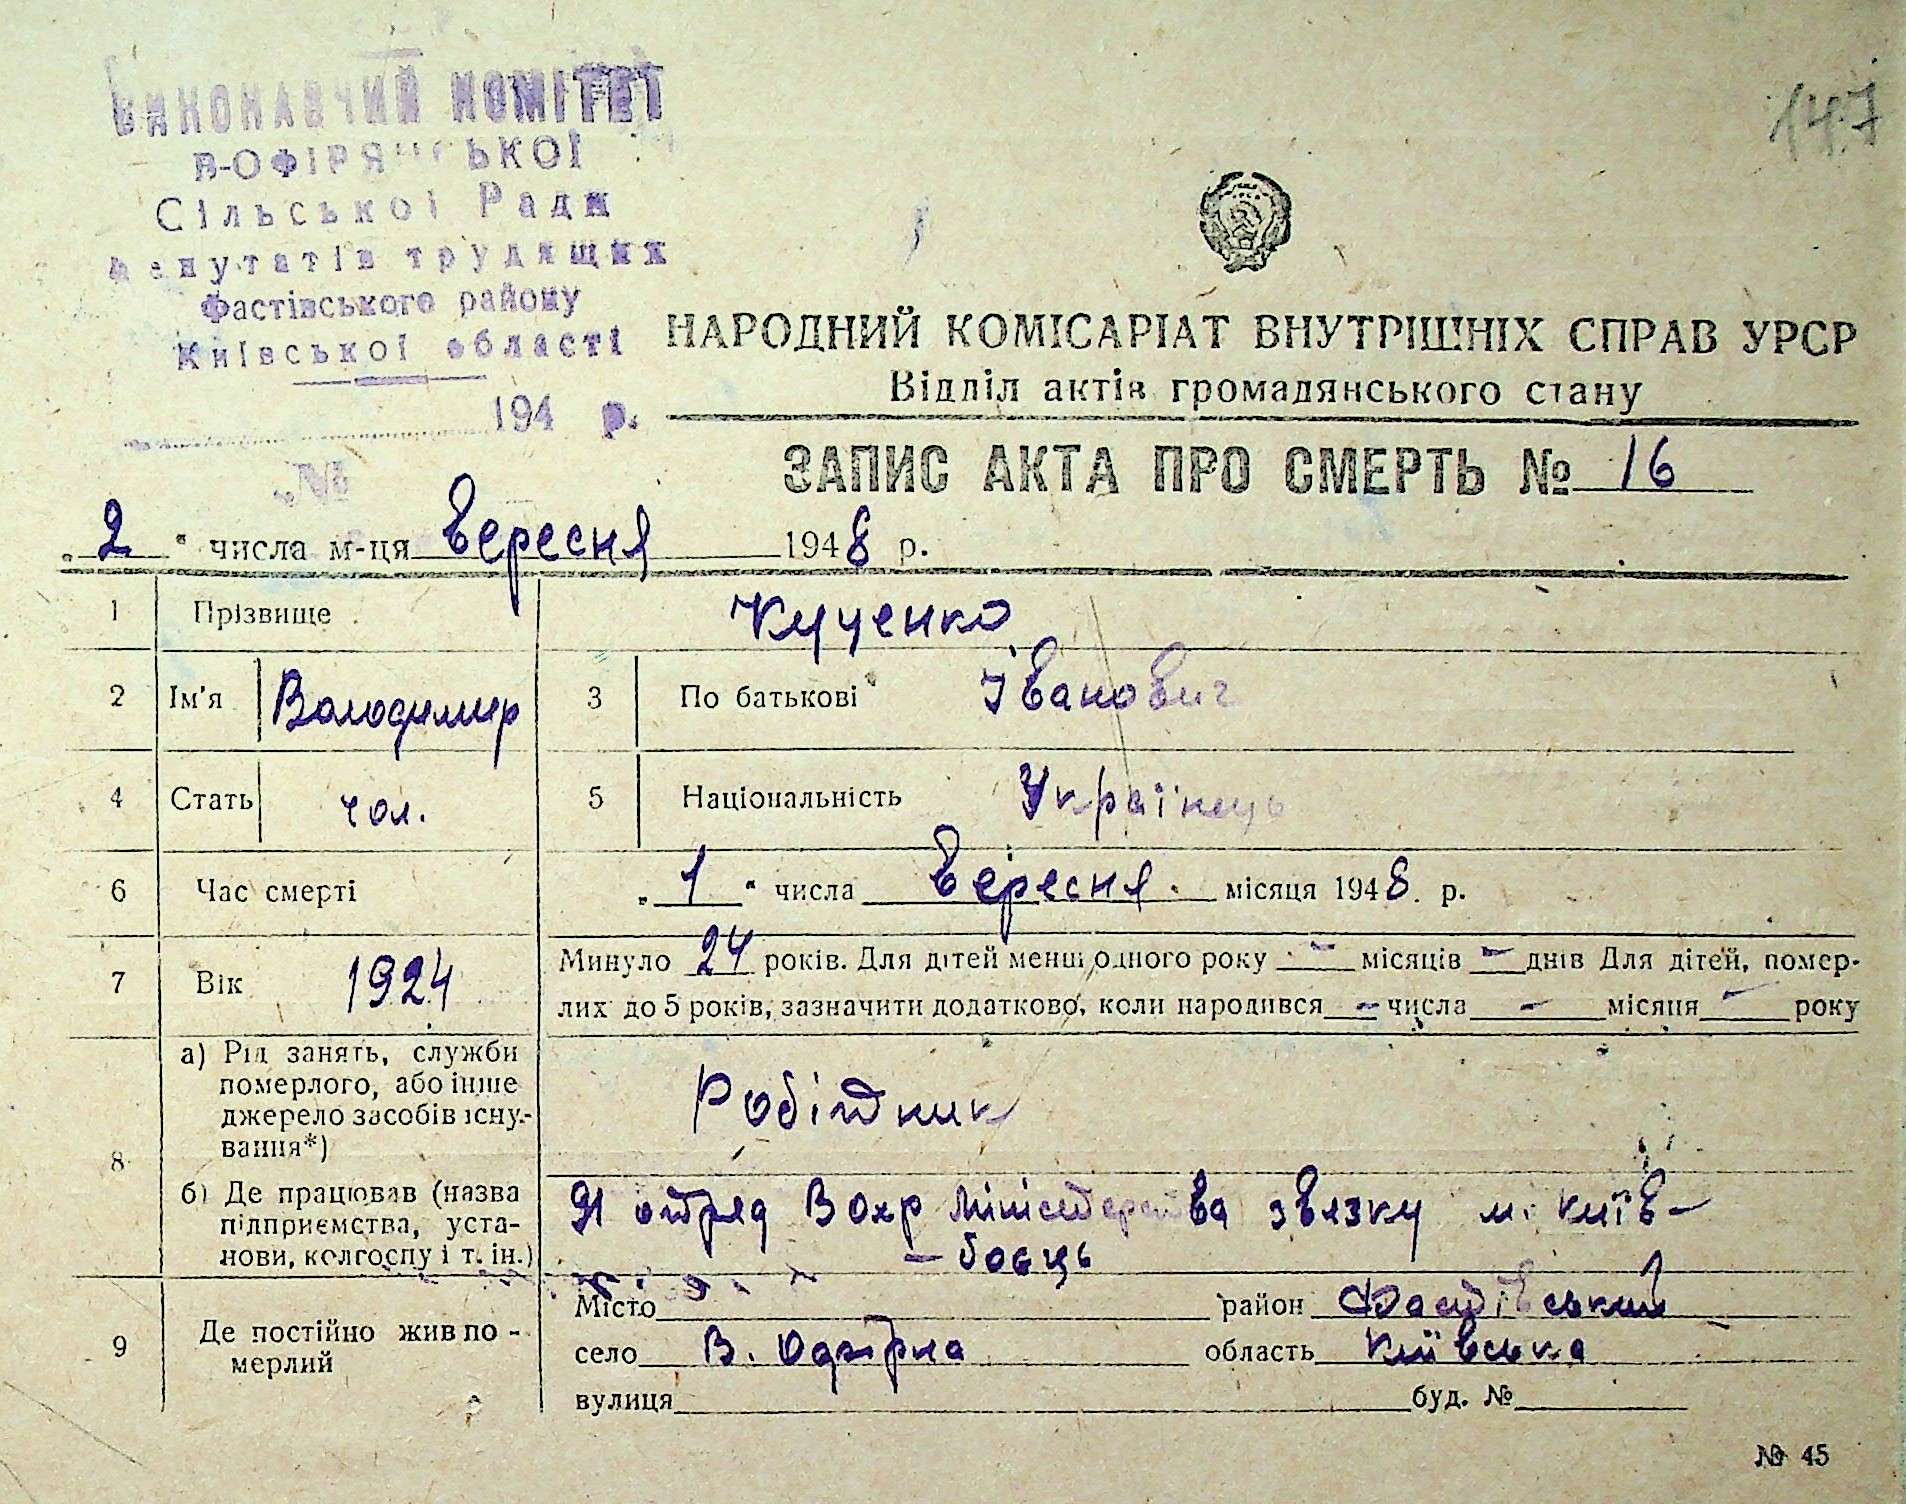 147
ВИКОНАВЧИЙ КОМІТЕТ
В-ОФІРЯНСЬКОЇ
Сільської Ради
депутатів трудящих
Фастівського району
Київської області
194 р.
№
НАРОДНИЙ КОМІСАРІАТ ВНУТРІШНІХ СПРАВ УРСР
Відділ актів громадянського стану
ЗАПИС АКТА ПРО СМЕРТЬ № 16
„2“ числа м-ця Вересня 1948 р.
1 Прізвище Куценко
2 Ім'я Володимир 3 По батькові Іванович
4 Стать чол. 5 Національність Українець
6 Час смерті „1“ числа Вересня місяця 1948 р.
7 Вік 1924 Минуло 24 років. Для дітей менш одного року - місяців - днів Для дітей, помер-
лих до 5 років, зазначити додатково, коли народився - числа - місяця - року
8 а) Рід занять, служби
померлого, або інше
джерело засобів існу-
вання*)
Робітник
б) Де працював (назва
підприємства, уста-
нови, колгоспу і т. ін.)
отряд Вохр Міністерства звязку м. Київ-
- боєць
9 Де постійно жив по-
мерлий
Місто район Фастівський
село В. область Київська
вулиця буд. №
№ 45